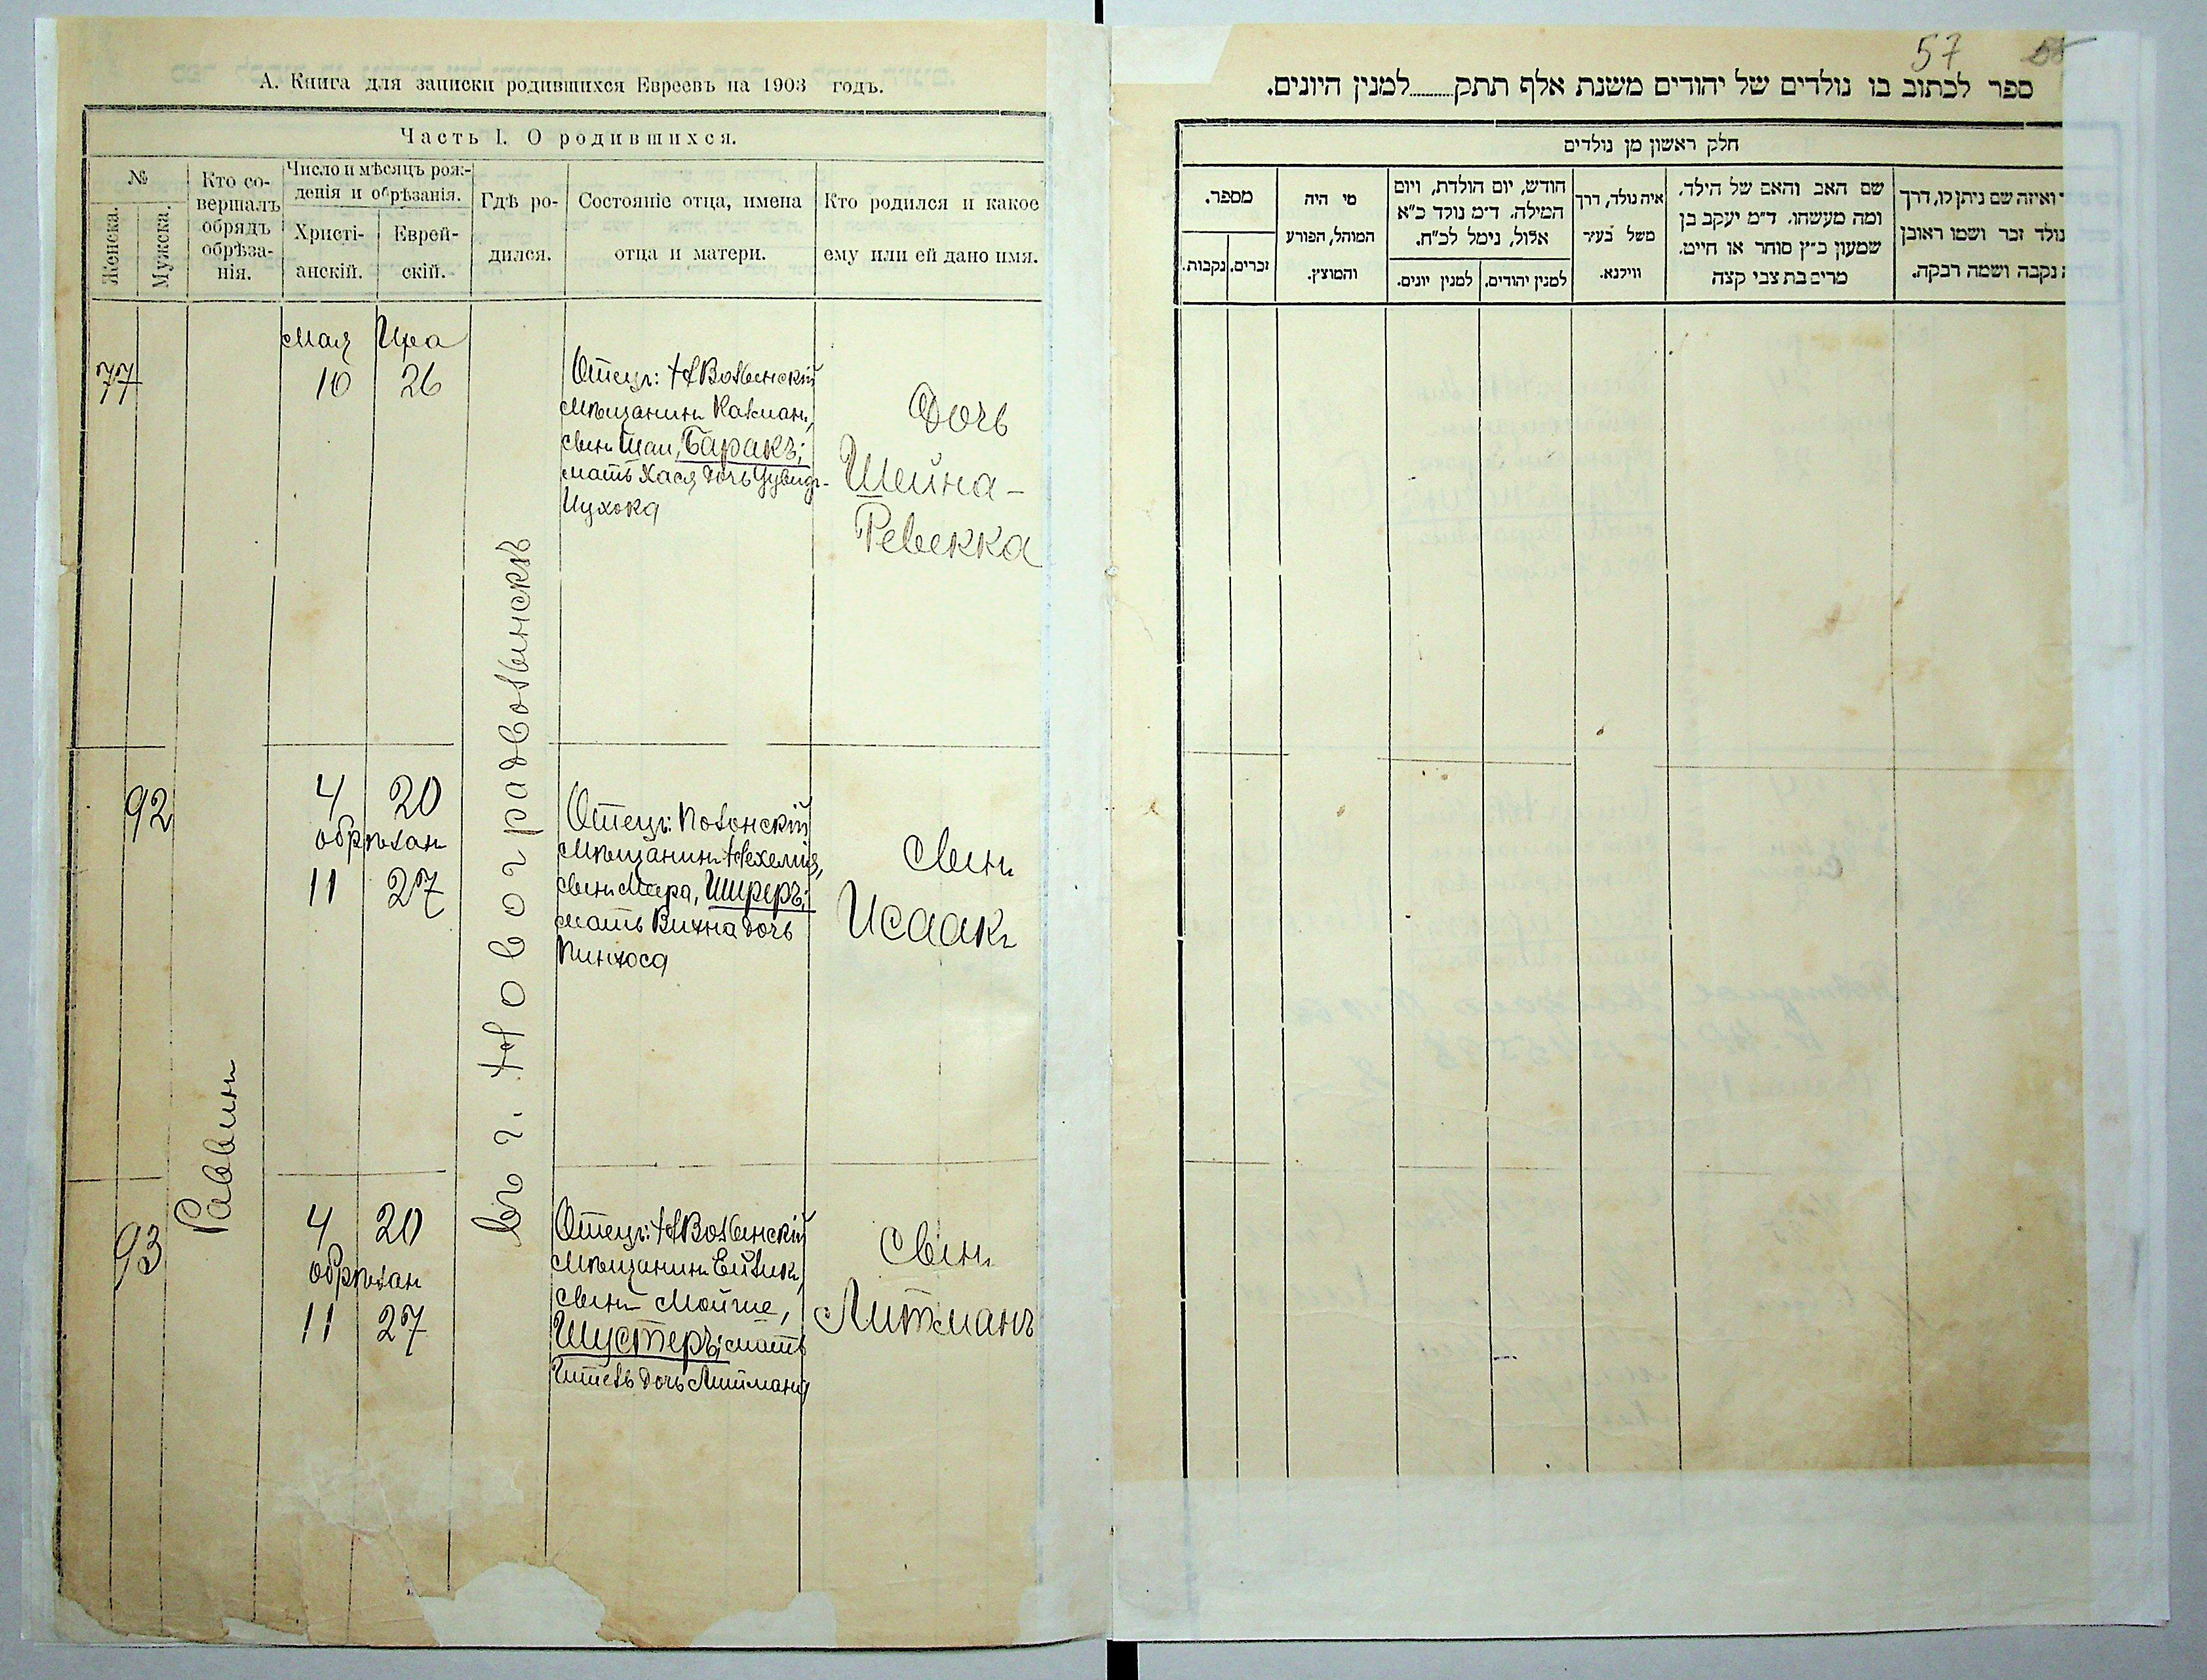 А. Книга для записки родившихся Евреевъ на 1903 годъ.
Часть I. О родившихся.
№
Женска.
Мужска.
Кто со-
вершалъ
обрядъ
обрѣза-
нія.
Число и мѣсяцъ рож-
денія и обрѣзанія.
Христі-
анскій.
Еврей-
скій.
Гдѣ ро-
дился.
Состояніе отца, имена
отца и матери.
Кто родился и какое
ему или ей дано имя.
Мая Ира
77
10 26
Отецъ: НВолынскій
мѣщанинъ Калманъ,
сынъ Шаи, Баракъ;
мать Хася дочь
Ицхока
Дочь
Шейна-
Ревекка
92
4 20
обрѣзан
11 27
Отецъ: Полонскій
мѣщанинъ Нехемія,
сынъ Меера, Ширеръ;
мать Вихна дочь
Пинхоса
Сынъ
Исаакъ
93
4 20
обрѣзан
11 27
Отецъ: НВолынскій
мѣщанинъ Ейзикъ,
сынъ Мойше,
Шустеръ; мать
Гитель дочь Литмана
Сынъ
Литманъ
Раввинъ
Въ г. Новоградволынскѣ
57
58
ספר לכתוב בו נולדים של יהודים משנת אלף תתק........למנין היונים.
חלק ראשון מן נולדים
מספר.
זכרים.
נקבות.
מי היה
המוהל, הפורע
והמוצץ.
חודש, יום הולדת, ויום
המילה. ד״מ נולד כ״א
אלול, נימל לכ״ח.
למנין יהודים.
למנין יונים.
איה נולד, דרך
משל בעיר
ווילנא.
שם האב והאם של הילד.
ומה מעשהו. ד״מ יעקב בן
שמעון כ״ץ סוחר או חייט.
מרים בת צבי קצה
ואיזה שם ניתן לו, דרך
נולד זכר ושמו ראובן
נקבה ושמה רבקה.